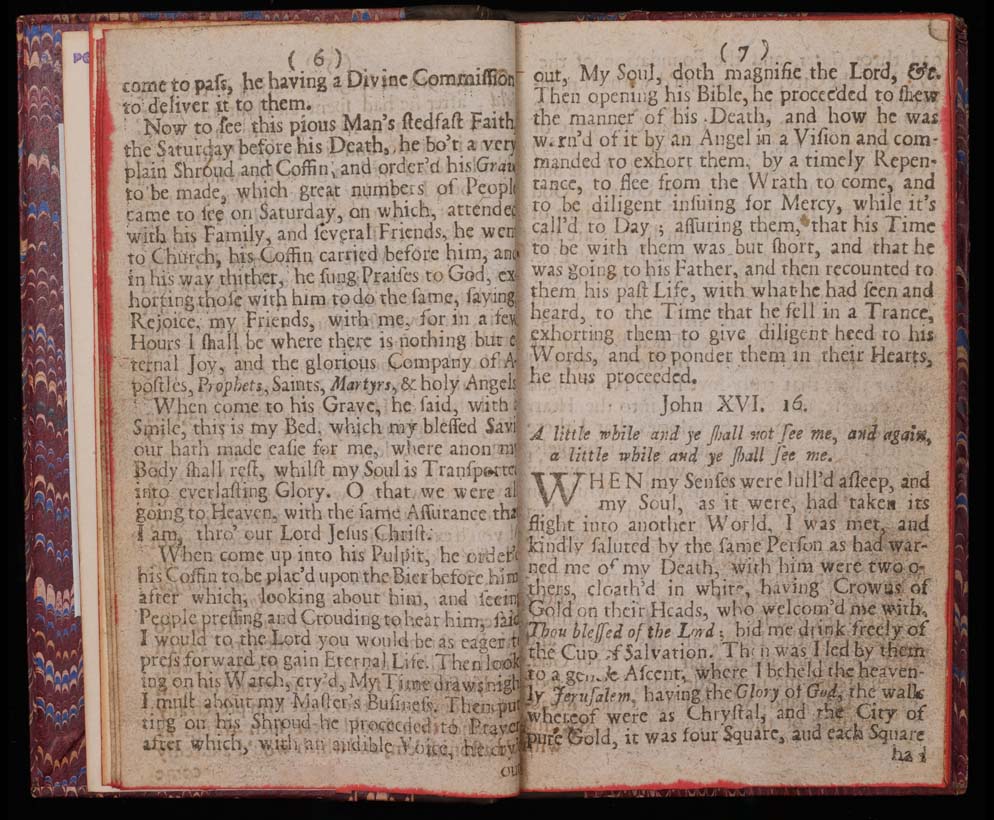 ( 6 )
come to paſs, he having a Divine Commiſſion
to deliver it to them.
Now to ſee this pious Man's ſtedfaſt Faith
the Saturday before his Death, he bo't a very
plain Shroud and Coffin, and order'd his Grav
to be made, which great numbers of Peopl
came to ſee on Saturday, on which, attended
with his Family, and ſeveral Friends, he wen
to Church, his Coffin carried before him, and
in his way thither, he ſung Praiſes to God, ex-
horting thoſe with him to do the ſame, ſaying
Rejoice, my Friends, with me, for in a few
Hours I ſhall be where there is nothing but e
ternal Joy, and the glorious Company of A-
poſtles, Prophets, Saints, Martyrs, & holy Angels
When come to his Grave, he ſaid, with
Smile, this is my Bed, which my bleſſed Savi
our hath made eaſie for me, where anon my
Body ſhall reſt, whilſt my Soul is Tranſported
into everlaſting Glory. O that we were al
going to Heaven, with the ſame Aſſurance tha
I am, thro' our Lord Jeſus Chriſt.
When come up into his Pulpit, he order'd
his Coffin to be plac'd upon the Bier before him
after which, looking about him, and ſeein
People preſſing and Crouding to hear him, ſaid
I would to the Lord you would be as eager t
preſs forward to gain Eternal Life. Then look
ing on his Watch, cry'd, My Time draws nigh
I muſt about my Maſter's Buſineſs. Then put
ting on his Shroud he proceeded to Prayer
after which, with an audible Voice, he cry'
out
( 7 )
out, My Soul, doth magnifie the Lord, &c.
Then opening his Bible, he proceeded to ſhew
the manner of his Death, and how he was
w.rn'd of it by an Angel in a Viſion and com-
manded to exhort them, by a timely Repen-
tance, to flee from the Wrath to come, and
to be diligent inſuing for Mercy, while it's
call'd to Day ; aſſuring them, that his Time
to be with them was but ſhort, and that he
was going to his Father, and then recounted to
them his paſt Life, with what he had ſeen and
heard, to the Time that he fell in a Trance,
exhorting them to give diligent heed to his
Words, and to ponder them in their Hearts,
he thus proceeded.
John XVI. 16.
A little while and ye ſhall not ſee me, and again,
a little while and ye ſhall ſee me.
WHEN my Senſes were lull'd aſleep, and
my Soul, as it were, had taken its
flight into another World, I was met, and
kindly ſaluted by the ſame Perſon as had war-
ned me of my Death, with him were two o-
thers, cloath'd in white, having Crowns of
Gold on their Heads, who welcom'd me with,
Thou bleſſed of the Lord; bid me drink freely of
the Cup of Salvation. Then was I led by them
to a gentle Aſcent, where I beheld the heaven-
ly Jeruſalem, having the Glory of God, the walls
whereof were as Chryſtal, and the City of
pure Gold, it was four Square, and each Square
had